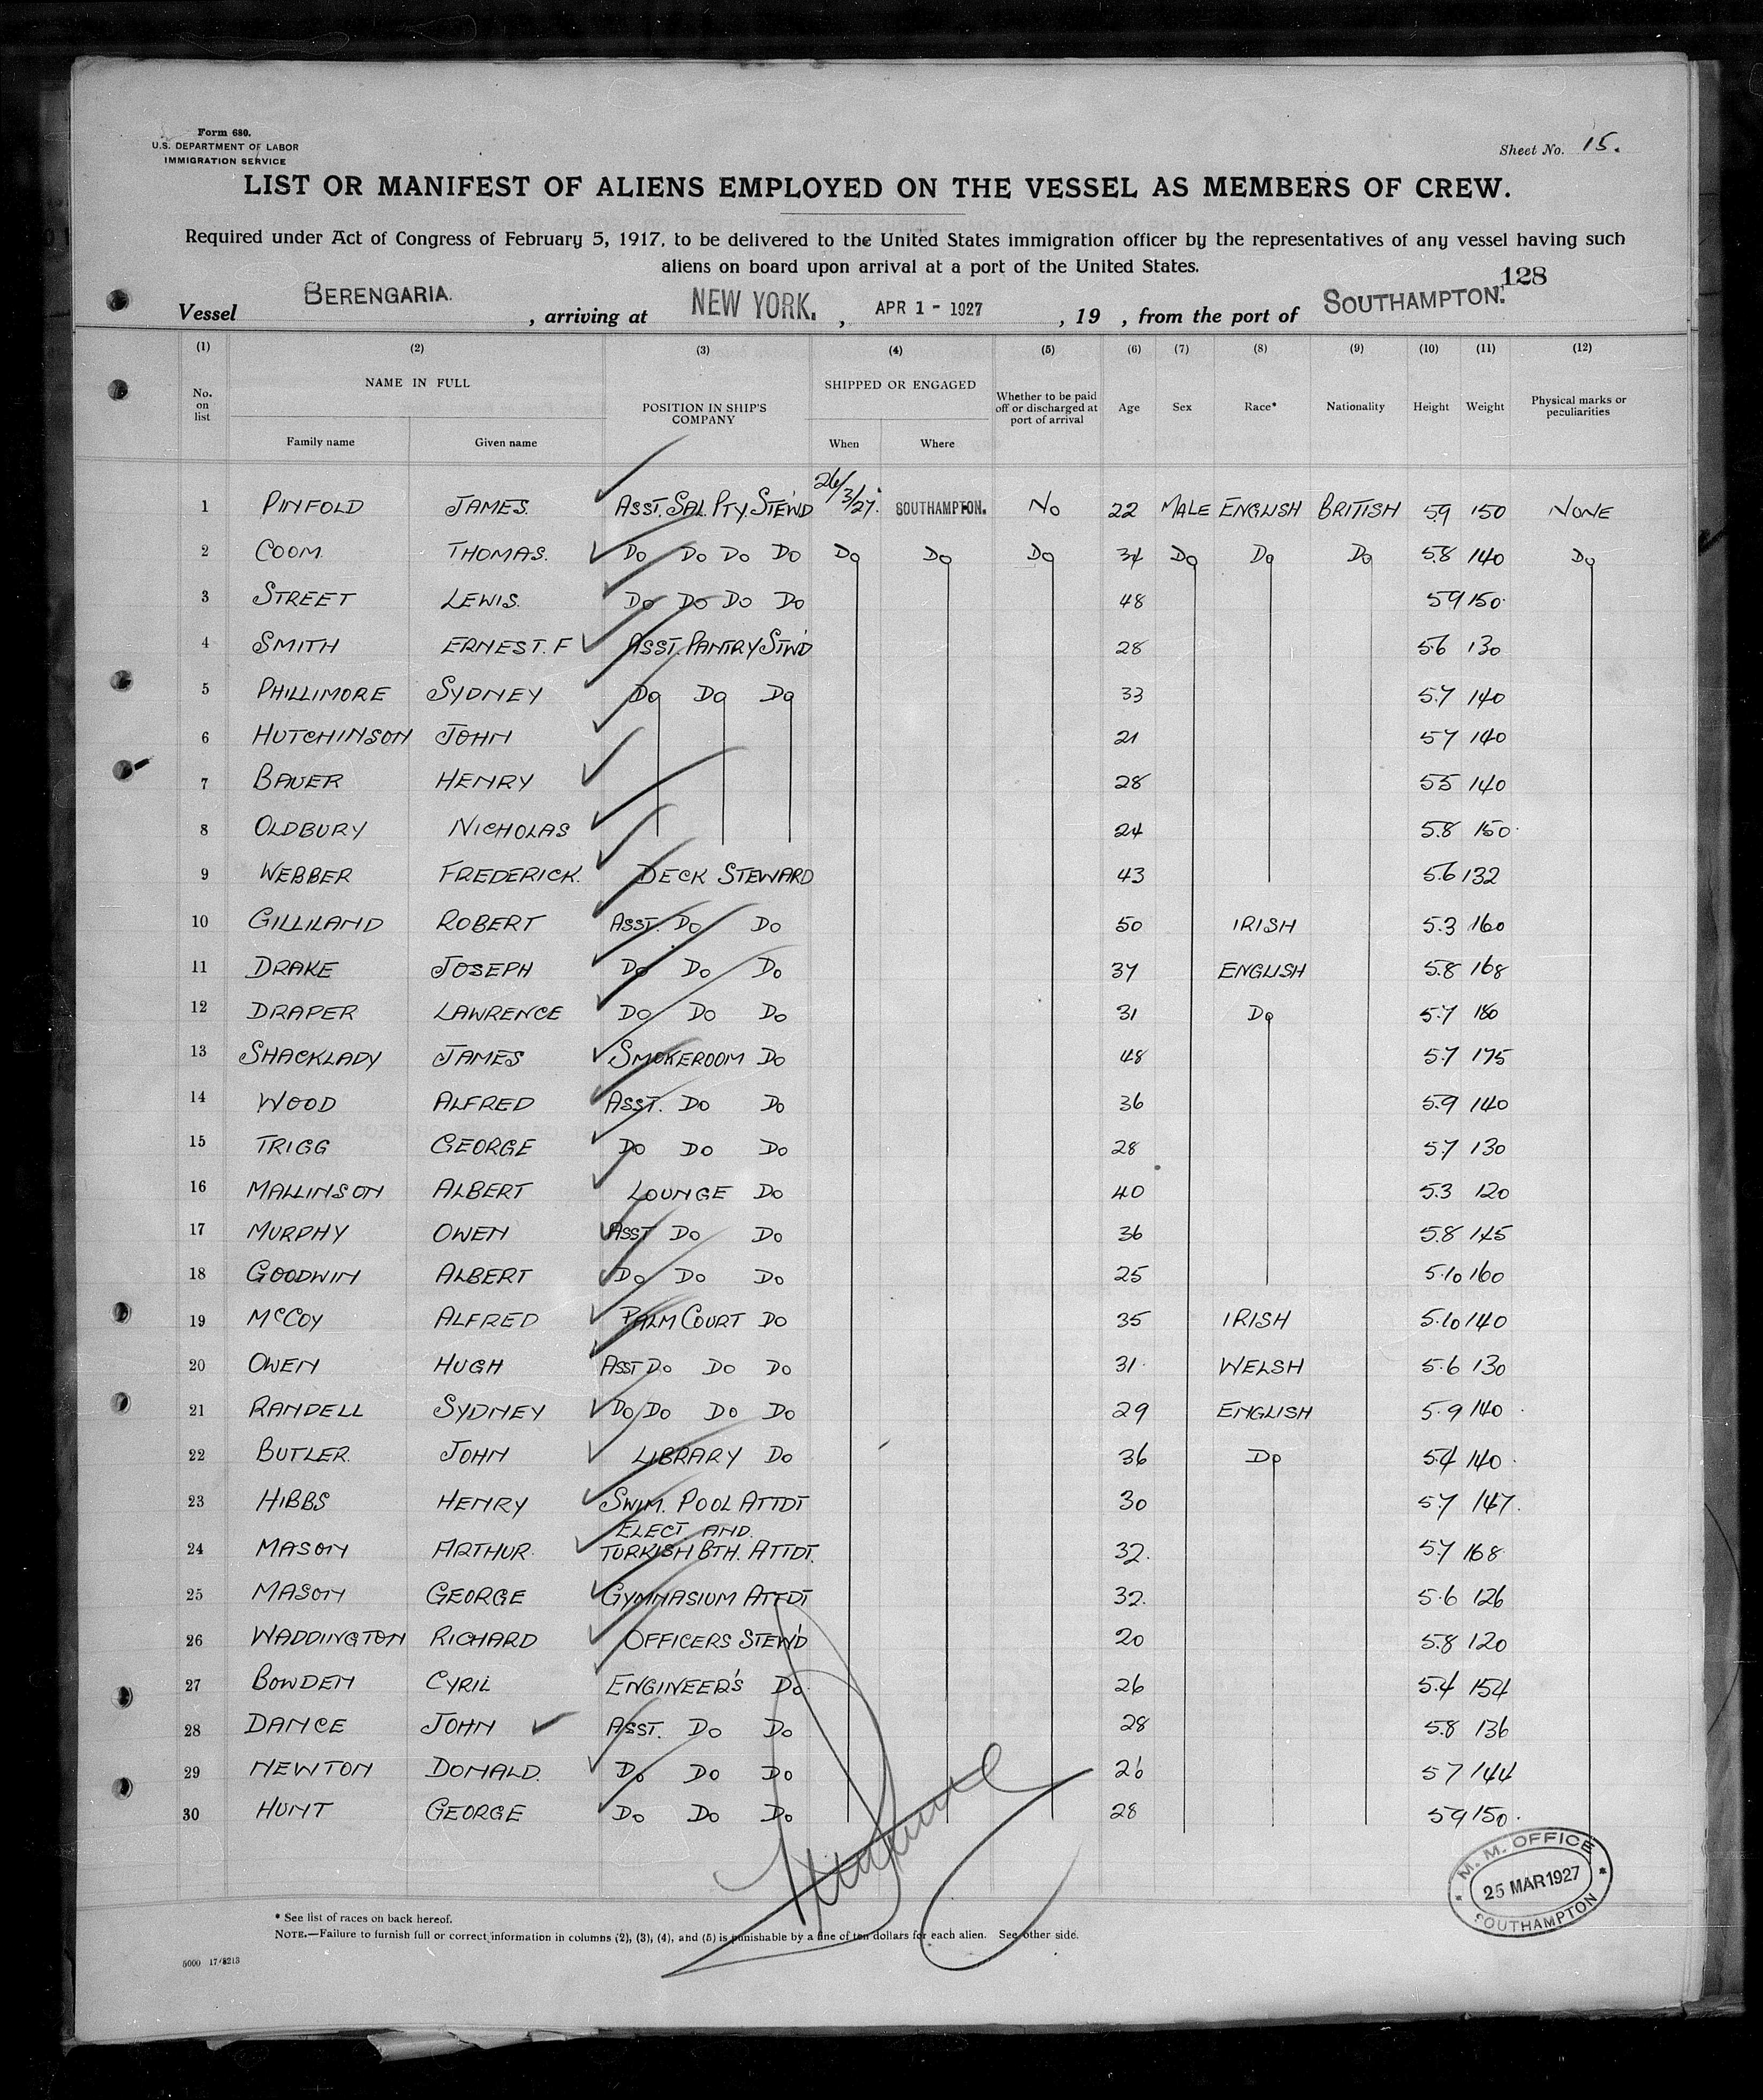 Form 680.
U.S. DEPARTMENT OF LABOR
IMMIGRATION SERVICE
Sheet No. 15.
LIST OR MANIFEST OF ALIENS EMPLOYED ON THE VESSEL AS MEMBERS OF CREW.
Required under Act of Congress of February 5, 1917, to be delivered to the United States immigration officer by the representatives of any vessel having such
aliens on board upon arrival at a port of the United States.
128
Vessel BERENGARIA. , arriving at NEW YORK. , APR 1 - 1927 , 19 , from the port of SOUTHAMPTON.
(1) (2) (3) (4) (5) (6) (7) (8) (9) (10) (11) (12)
No. on list NAME IN FULL POSITION IN SHIP'S COMPANY SHIPPED OR ENGAGED Whether to be paid off or discharged at port of arrival Age Sex Race* Nationality Height Weight Physical marks or peculiarities
Family name Given name When Where
1 PINFOLD JAMES. ASST. SAL. PTY. STEW'D 26/3/27. SOUTHAMPTON. NO 22 MALE ENGLISH BRITISH 5.9 150 NONE
2 COOM THOMAS. DO DO DO DO DO DO DO 34 DO DO DO 5.8 140 DO
3 STREET LEWIS. DO DO DO DO 48 5 9 150.
4 SMITH ERNEST. F ASST. PANTRY STW'D 28 5.6 130
5 PHILLIMORE SYDNEY DO DO DO 33 5.7 140
6 HUTCHINSON JOHN 21 5 7 140
7 BAUER HENRY 28 5.5 140
8 OLDBURY NICHOLAS 24 5.8 150.
9 WEBBER FREDERICK. DECK STEWARD 43 5.6 132
10 GILLILAND ROBERT ASST. DO DO 50 IRISH 5.3 160
11 DRAKE JOSEPH DO DO DO 37 ENGLISH 5.8 168
12 DRAPER LAWRENCE DO DO DO 31 DO 5.7 180
13 SHACKLADY JAMES SMOKEROOM DO 48 5.7 175
14 WOOD ALFRED ASST. DO DO 36 5.9 140
15 TRIGG GEORGE DO DO DO 28 5.7 130
16 MALLINSON ALBERT LOUNGE DO 40 5.3 120
17 MURPHY OWEN ASST DO DO 36 5.8 145
18 GOODWIN ALBERT DO DO DO 25 5.10 160
19 McCOY ALFRED PALM COURT DO 35 IRISH 5.10 140
20 OWEN HUGH ASST DO DO DO 31. WELSH 5.6 130
21 RANDELL SYDNEY DO DO DO DO 29 ENGLISH 5.9 140
22 BUTLER. JOHN LIBRARY DO 36 DO 5.4 140
23 HIBBS HENRY SWIM. POOL ATTDT 30 5.7 147.
24 MASON ARTHUR. ELECT AND. TURKISH BTH. ATTDT. 32. 5.7 168
25 MASON GEORGE GYMNASIUM ATTDT 32. 5.6 126
26 WADDINGTON RICHARD OFFICERS STEW'D 20 5.8 120
27 BOWDEN CYRIL ENGINEER'S DO 26 5.4 154
28 DANCE JOHN ASST. DO DO 28 5.8 136
29 NEWTON DONALD. DO DO DO 26 5 7 144
30 HUNT GEORGE DO DO DO 28 5 9 150.
M. M. OFFICE
25 MAR 1927
SOUTHAMPTON
* See list of races on back hereof.
NOTE.—Failure to furnish full or correct information in columns (2), (3), (4), and (5) is punishable by a fine of ten dollars for each alien. See other side.
5000 17/8213